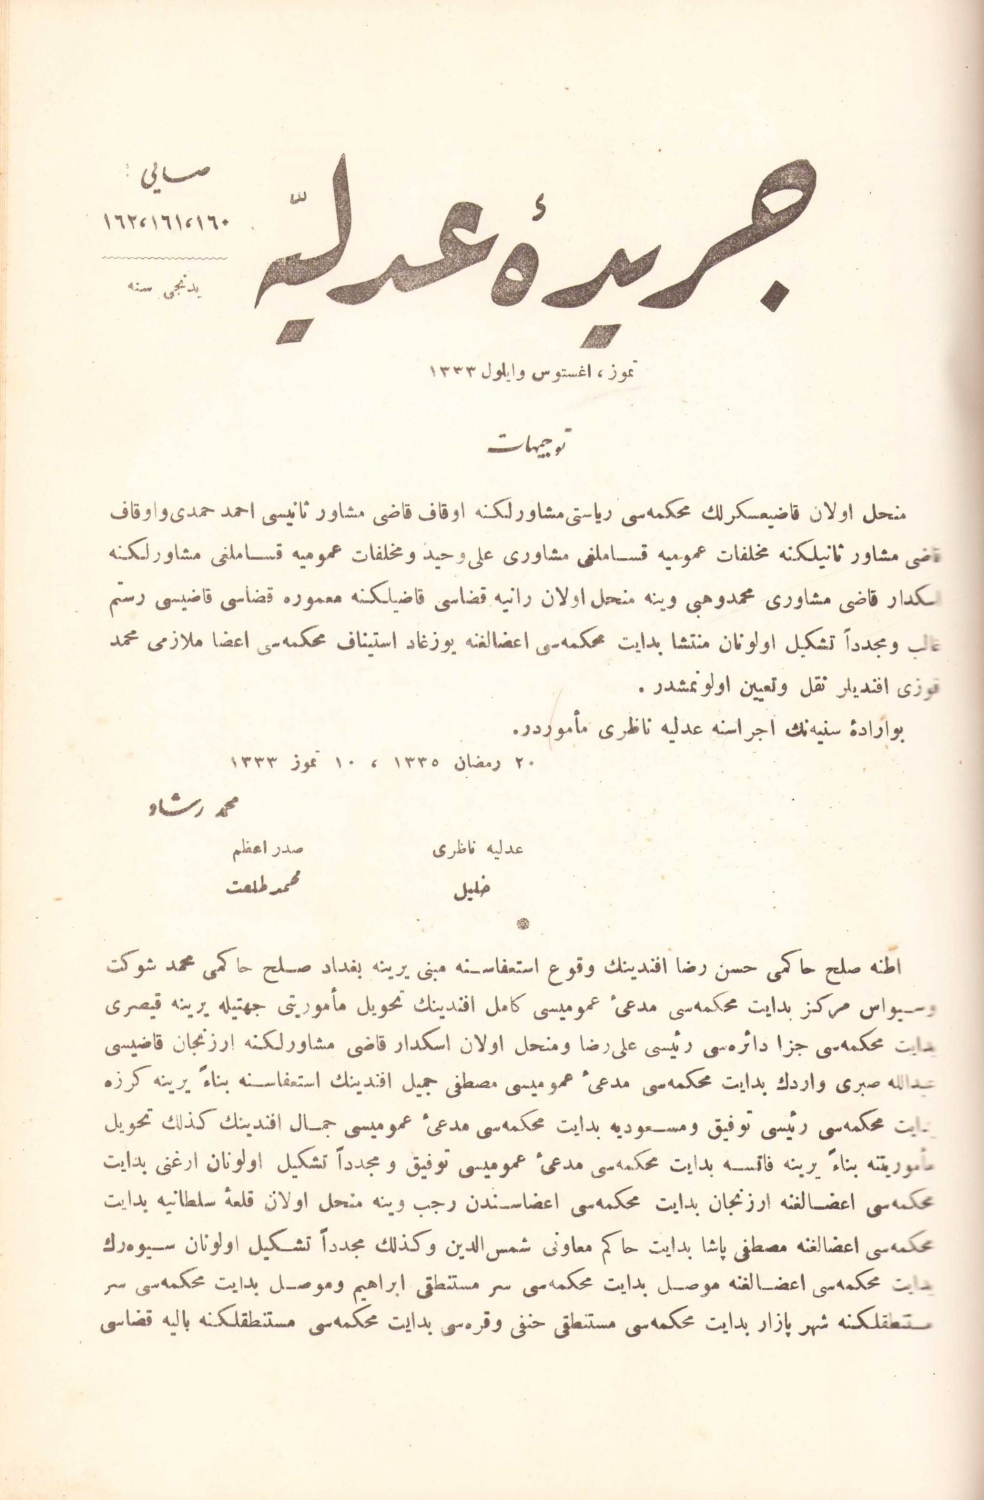 صايى :
١٦٠،١٦١،١٦٢
يدنجى سنه
جريدۀ عدليّه
تموز ، اغستوس وايلول ١٣٣٣
توجيهات
منحل اولان قاضيعسكرلك محكمه‌سى رياستى مشاورلكنه اوقاف قاضى مشاور ثانيسى احمد حمدى واوقاف
قاضى مشاور ثانيلكنه مخلفات عموميه قساملغى مشاورى على وحيد ومخلفات عموميه قساملغى مشاورلكنه
اسكدار قاضى مشاورى محمدوهبى وينه منحل اولان رانيه قضاسى قاضيلكنه معموره قضاسى قاضيسى رستم
غالب ومجدداً تشكيل اولونان منتشا بدايت محكمه‌سى اعضالغنه يوزغاد استيناف محكمه‌سى اعضا ملازمى محمد
فوزى افنديلر نقل وتعيين اولونمشدر .
بوارادۀ سنيه‌نك اجراسنه عدليه ناظرى مأموردر.
٢٠ رمضان ١٣٣٥ ، ١٠ تموز ١٣٣٣
محمد رشاد
عدليه ناظرى
صدراعظم
خليل
محمد طلعت
اطنه صلح حاكمى حسن رضا افندينك وقوع استعفاسنه مبنى يرينه بغداد صلح حاكمى محمد شوكت
وسيواس مركز بدايت محكمه‌سى مدعئ عموميسى كامل افندينك تحويل مأموريتى جهتيله يرينه قيصرى
بدايت محكمه‌سى جزا دائره‌سى رئيسى على‌رضا ومنحل اولان اسكدار قاضى مشاورلكنه ارزنجان قاضيسى
عبدالله صبرى واردك بدايت محكمه‌سى مدعئ عموميسى مصطفى جميل افندينك استعفاسنه بناءً يرينه كرزه
بدايت محكمه‌سى رئيسى توفيق ومسعوديه بدايت محكمه‌سى مدعئ عموميسى جمال افندينك كذلك تحويل
مأموريتنه بناءً يرينه فاتسه بدايت محكمه‌سى مدعئ عموميسى توفيق ومجدداً تشكيل اولونان ارغنى بدايت
محكمه‌سى اعضالغنه ارزنجان بدايت محكمه‌سى اعضاسندن رجب وينه منحل اولان قلعۀ سلطانيه بدايت
محكمه‌سى اعضالغنه مصطفى پاشا بدايت حاكم معاونى شمس‌الدين وكذلك مجدداً تشكيل اولونان سيوه‌رك
بدايت محكمه‌سى اعضالغنه موصل بدايت محكمه‌سى سر مستنطقى ابراهيم وموصل بدايت محكمه‌سى سر
مستنطقلكنه شهر پازار بدايت محكمه‌سى مستنطقى حنفى وقره‌سى بدايت محكمه‌سى مستنطقلكنه باليه قضاسى